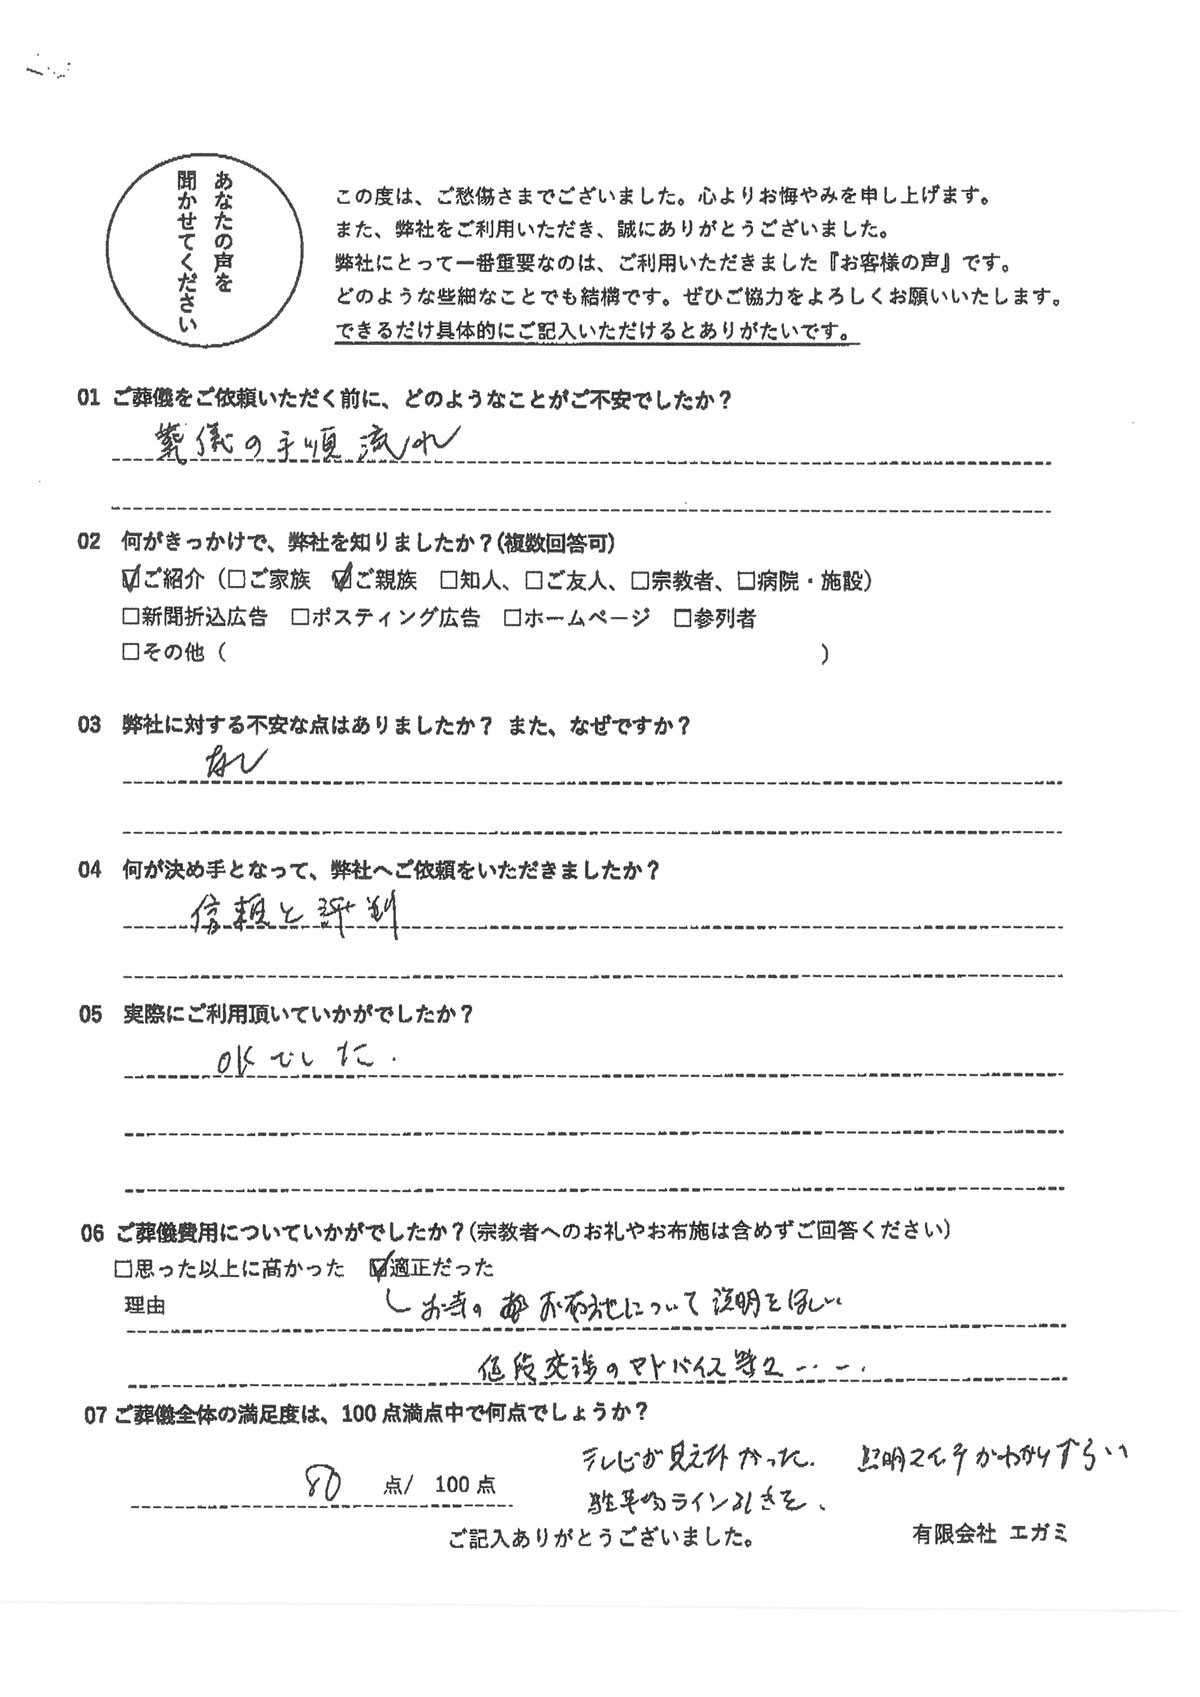 あなたの声を
聞かせてください
この度は、ご愁傷さまでございました。心よりお悔やみを申し上げます。
また、弊社をご利用いただき、誠にありがとうございました。
弊社にとって一番重要なのは、ご利用いただきました『お客様の声』です。
どのような些細なことでも結構です。ぜひご協力をよろしくお願いいたします。
できるだけ具体的にご記入いただけるとありがたいです。
01 ご葬儀をご依頼いただく前に、どのようなことがご不安でしたか？
葬儀の手順流れ
02 何がきっかけで、弊社を知りましたか？(複数回答可)
☑ご紹介（□ご家族 ☑ご親族 □知人、□ご友人、□宗教者、□病院・施設）
□新聞折込広告 □ポスティング広告 □ホームページ □参列者
□その他（ ）
03 弊社に対する不安な点はありましたか？ また、なぜですか？
なし
04 何が決め手となって、弊社へご依頼をいただきましたか？
信頼と評判
05 実際にご利用頂いていかがでしたか？
OKでした.
06 ご葬儀費用についていかがでしたか？(宗教者へのお礼やお布施は含めずご回答ください)
□思った以上に高かった ☑適正だった
理由 お寺の お布施について説明をほしい
値段交渉のアドバイス等2‥‥.
07 ご葬儀全体の満足度は、100点満点中で何点でしょうか？
テレビが見えなかった. 照明スイッチがわかりずらい
80 点/ 100点
駐車場ライン引きを、
ご記入ありがとうございました。 有限会社 エガミ